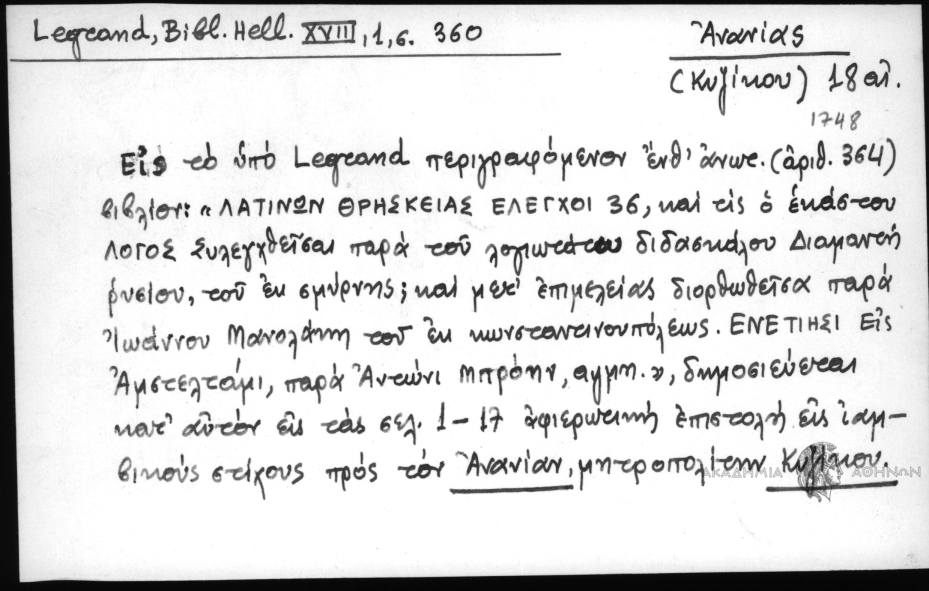 Legrand, Bibl. Hell. XVIII, 1, σ. 360
Ἀνανίας
(Κυζίκου) 18 αἰ.
1748
Εἰς τὸ ὑπὸ Legrand περιγραφόμενον ἔνθ' ἀνωτ. (ἀριθ. 364)
βιβλίον: "ΛΑΤΙΝΩΝ ΘΡΗΣΚΕΙΑΣ ΕΛΕΓΧΟΙ 36, καὶ τὶς ὁ ἑκάστου
ΛΟΓΟΣ Συλεγχθεῖσαι παρὰ τοῦ λογιωτάτου διδασκάλου Διαμαντῆ
ῥυσίου, τοῦ ἐκ σμύρνης; καὶ μετ' ἐπιμελείας διορθωθεῖσα παρὰ
Ἰωάννου Μανολάκη τοῦ ἐκ κωνσταντινουπόλεως. ΕΝΕΤΙΗΣΙ Εἰς
Ἀμστελτάμι, παρὰ Ἀντώνι μπρόην, αψμη. », δημοσιεύεται
κατ' αὐτὸν εἰς τὰς σελ. 1-17 ἀφιερωτικὴ ἐπιστολὴ εἰς ἰαμ-
βικοὺς στίχους πρὸς τὸν Ἀνανίαν, μητροπολίτην Κυζίκου.
ΑΚΑΔΗΜΙΑ ΑΘΗΝΩΝ